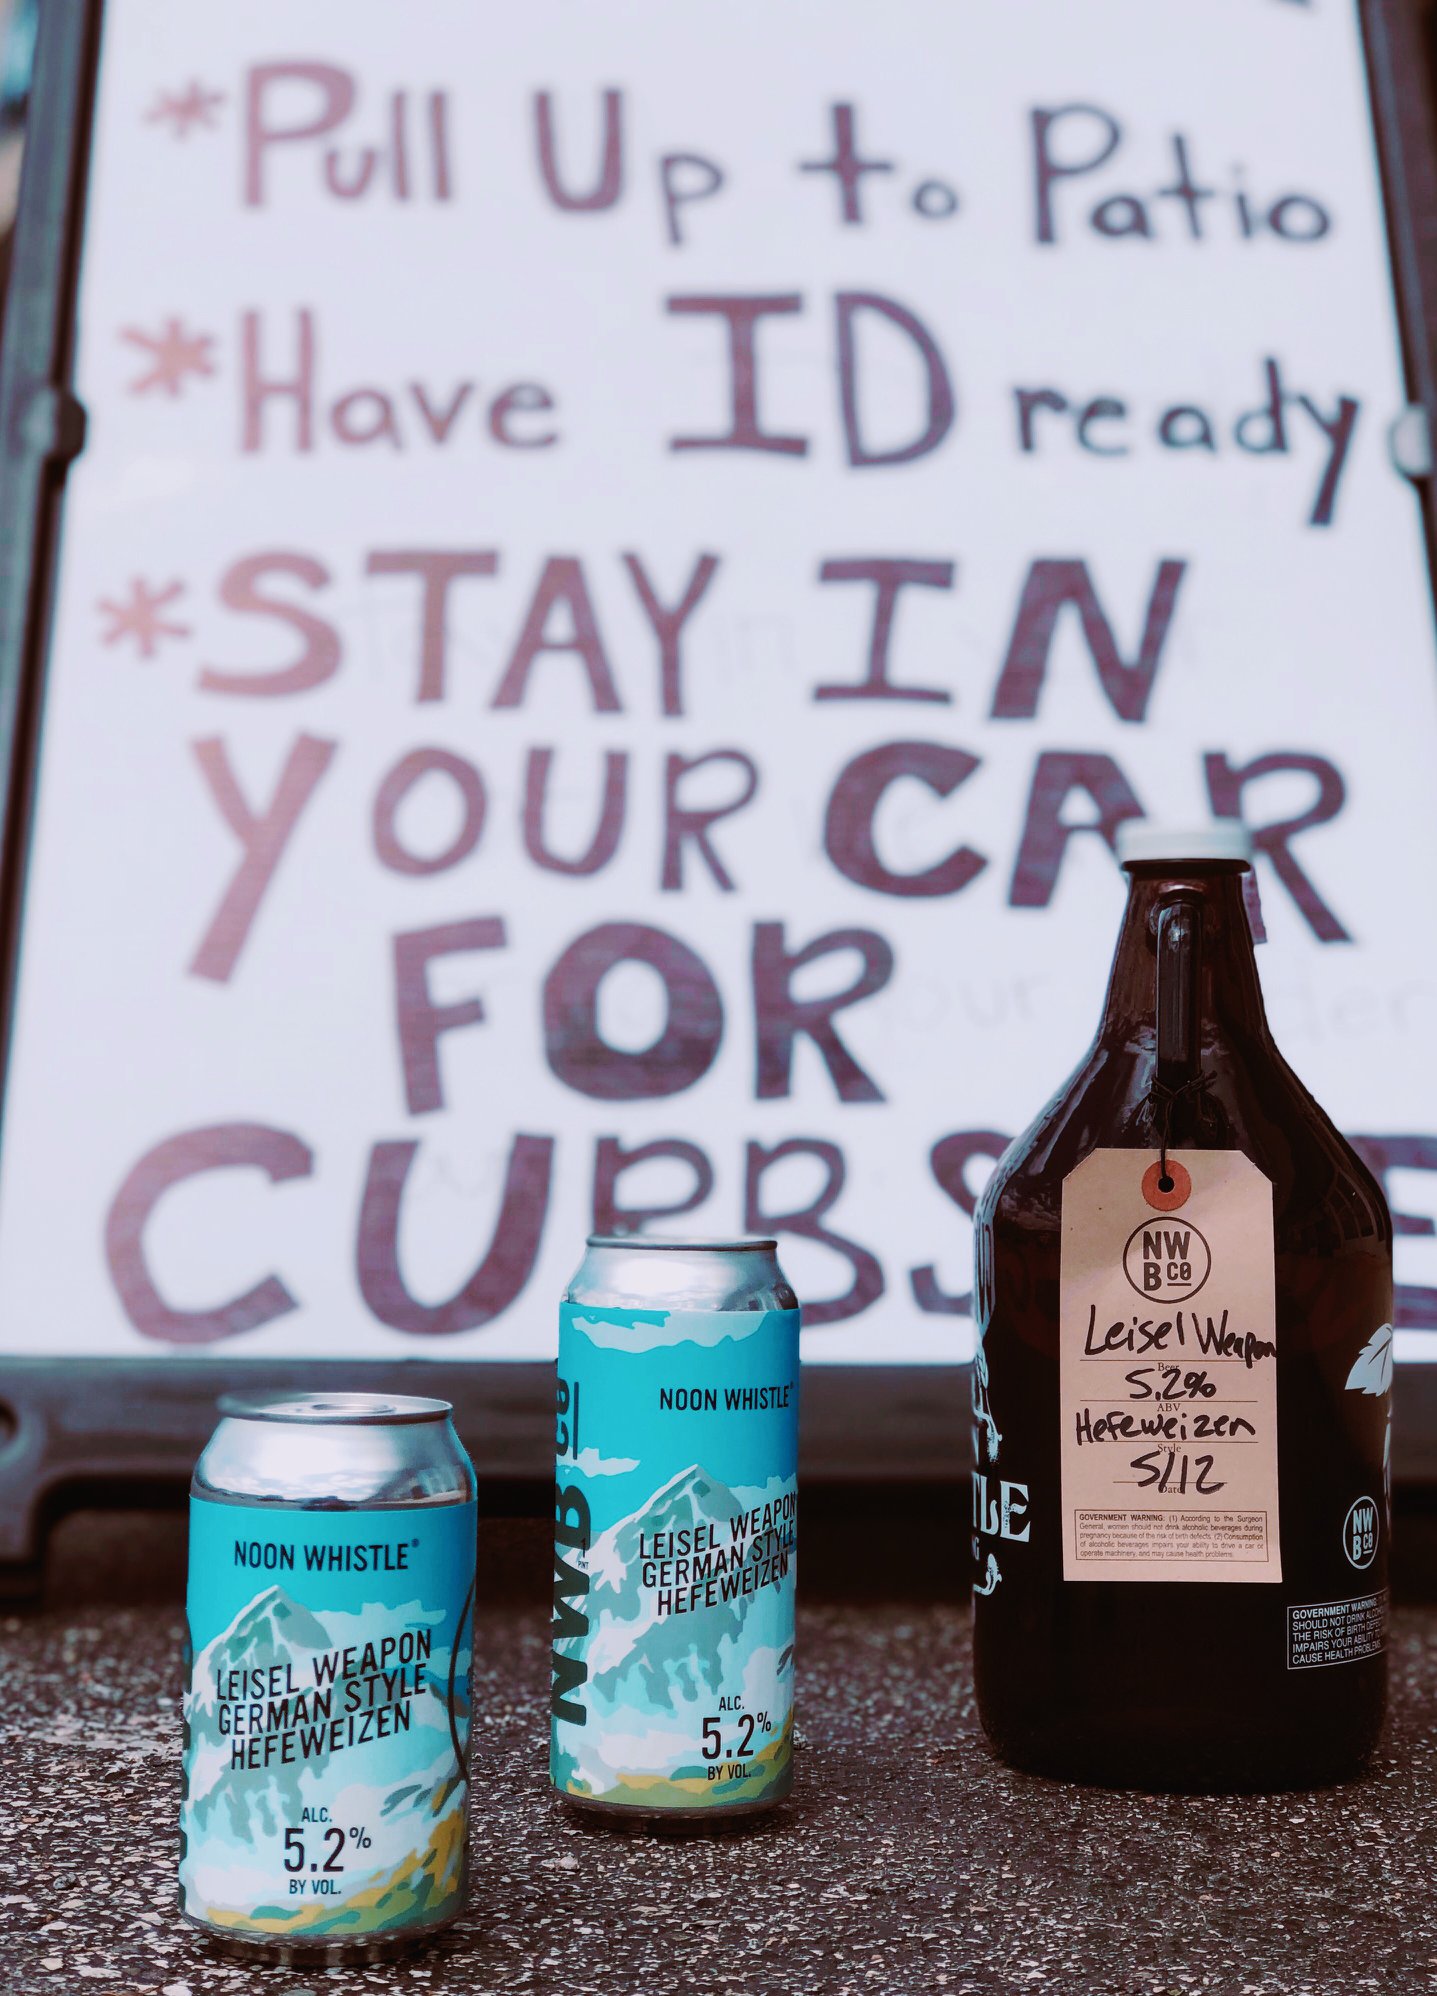 *Pull Up to Patio
*Have ID ready
*STAY IN
YOUR CAR
FOR
NOON WHISTLE®
LEISEL WEAPON
GERMAN STYLE
HEFEWEIZEN
ALC.
5.2%
BY VOL.
NWB co
PINT
NOON WHISTLE®
LEISEL WEAPON
GERMAN STYLE
HEFEWEIZEN
ALC.
5.2%
BY VOL.
NW
B CO
Leisel Weapon
Beer
5.2%
ABV
Hefeweizen
Style
5/12
Date
GOVERNMENT WARNING: (1) According to the Surgeon
General, women should not drink alcoholic beverages during
pregnancy because of the risk of birth defects. (2) Consumption
of alcoholic beverages impairs your ability to drive a car or
operate machinery, and may cause health problems.
NW
B CO
GOVERNMENT WARNING:
SHOULD NOT DRINK
THE RISK OF BIRTH
IMPAIRS YOUR ABILITY
CAUSE HEALTH PROBLEMS